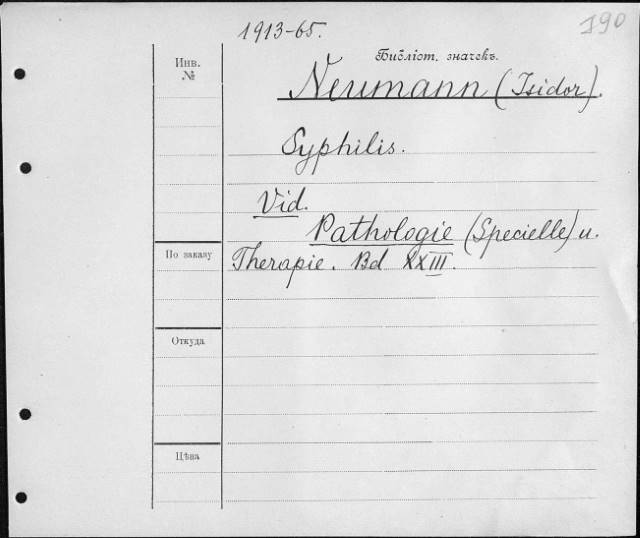 1913-65.
190
Инв.
№
Библіот. значекъ.
Neumann (Isidor).
Syphilis.
Vid.
Pathologie (Specielle) u.
По заказу
Therapie. Bd XXIII.
Откуда
Цѣна